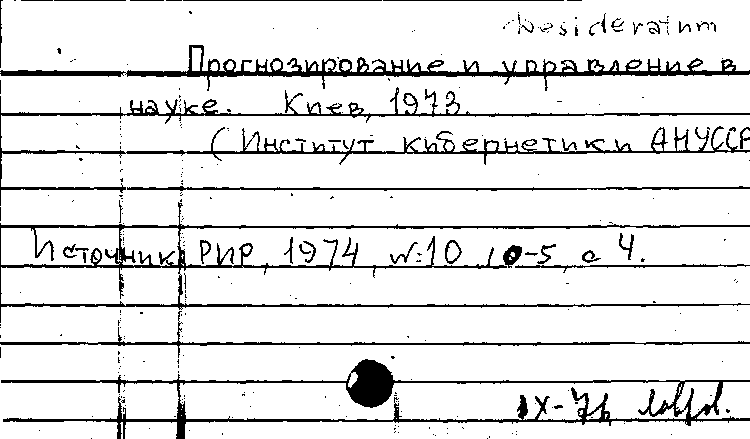 Desideratum
Прогнозирование и управление в
науке. Киев, 1973.
(Институт кибернетики АНУССР
Источник РИР, 1974, №:10, 10-5, с 4.
IX-